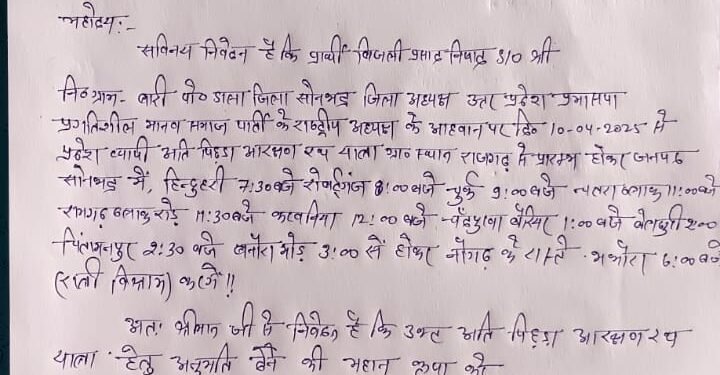 महोदय:-
सविनय निवेदन है कि प्रार्थी बिजली प्रसाद निषाद S/O श्री
नि० ग्राम- बारी पो० डाला जिला सोनभद्र जिला अध्यक्ष उत्तर प्रदेश प्रमासपा
प्रगतिशील मानव समाज पार्टी के राष्ट्रीय अध्यक्ष के आहवान पर दि० 10-04-2025 से
प्रदेश व्यापी अति पिछड़ा आरक्षण रथ यात्रा ग्राम स्थान राजगढ़ से प्रारम्भ होकर जनपद
सोनभद्र में, हिन्दुहरी 7:30 बजे रोबर्ट्गंज 8:00 बजे चुर्क 9:00 बजे चतरा ब्लाक 11:00 बजे
रामगढ़ ब्लाक रोड़ 11:30 बजे करवनिया 12:00 बजे 1:00 बजे 2:00
2:30 बजे मोड़ 3:00 से होकर नौगढ़ के रास्ते 6:00 बजे
(रात्री विश्राम) करेगें!!
अतः श्रीमान जी से निवेदन है कि उक्त अति पिछड़ा आरक्षण रथ
यात्रा हेतु अनुमति देने की महान कृपा करे